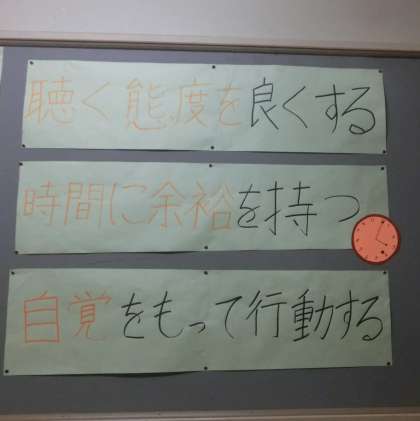 聴く態度を良くする
時間に余裕を持つ
自覚をもって行動する